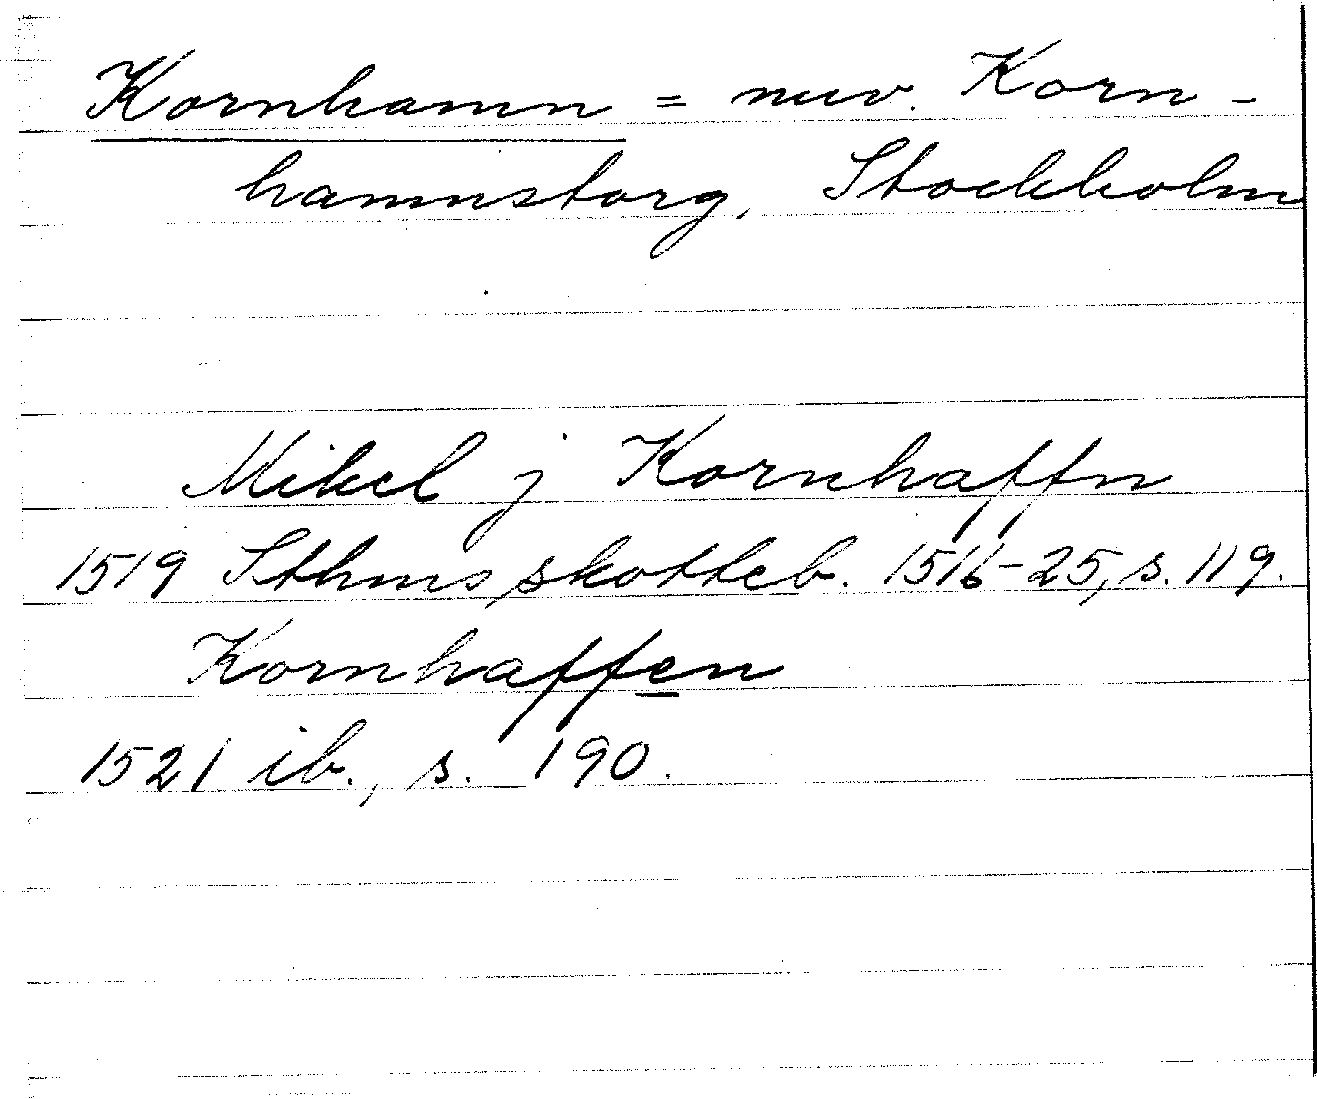 Kornhamn = nuv. Korn-
hamnstorg, Stockholm
Mikel j Kornhaffn
1519 Sthms skotteb. 1516-25, s. 119.
Kornhaffen
1521 ib., s. 190.